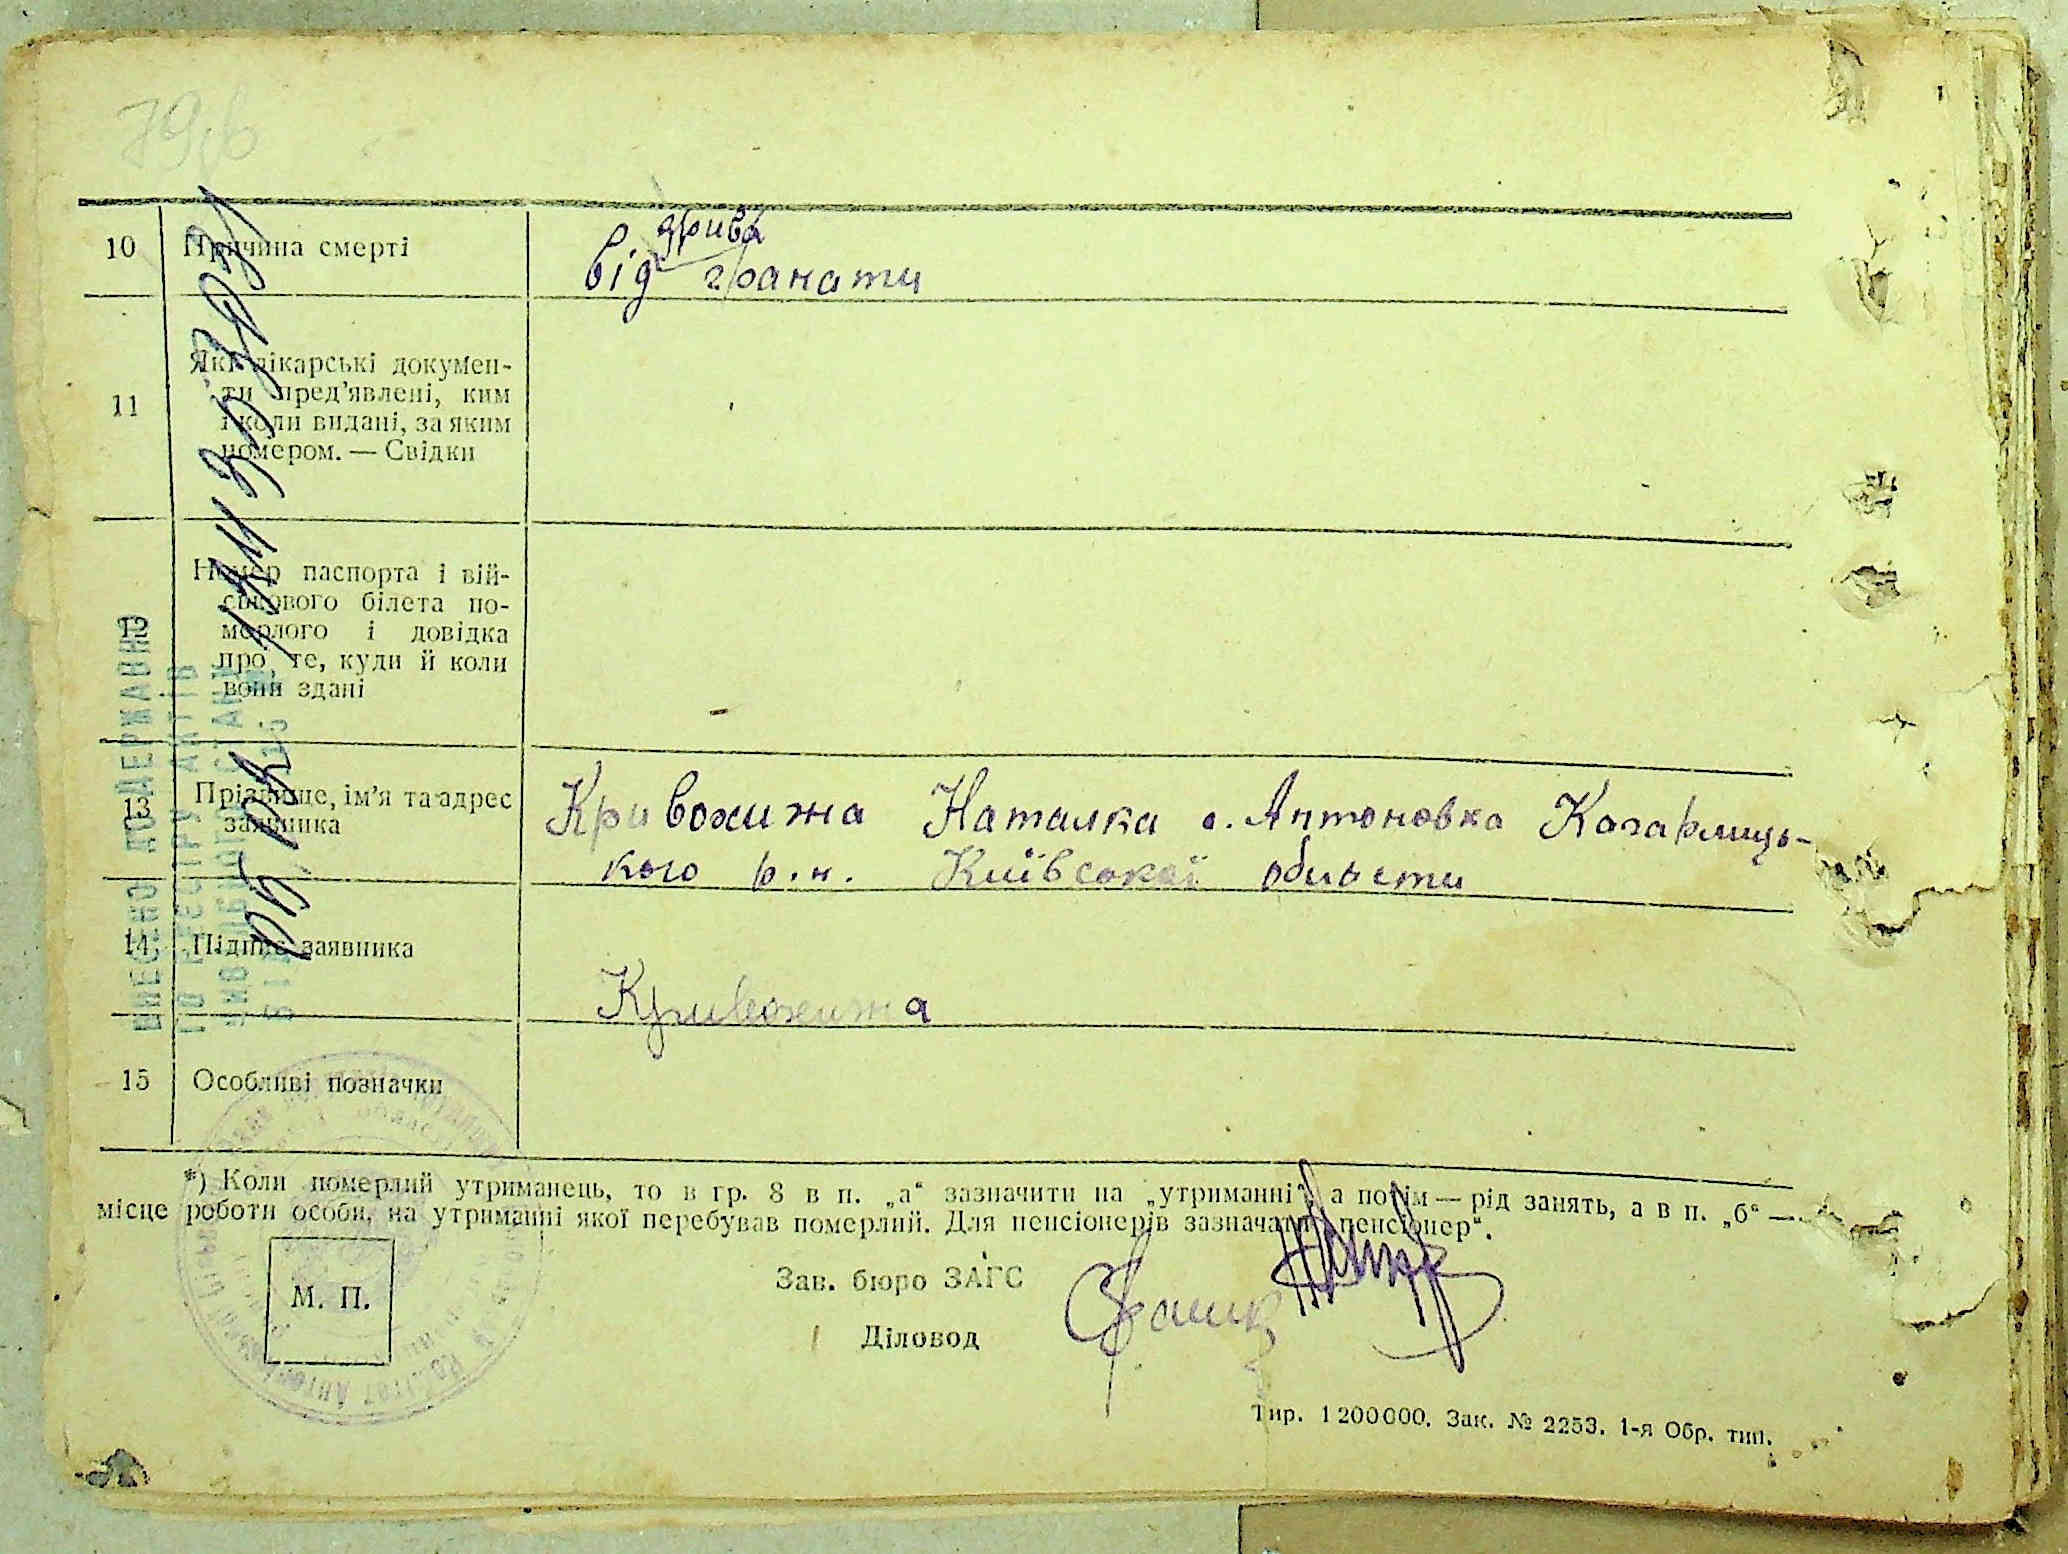 79
10 Причина смерті
зрива
від гранати
11 Які лікарські докумен-
ти пред’явлені, ким
і коли видані, за яким
номером. — Свідки
12 Номер паспорта і вій-
ськового білета по-
мерлого і довідка
про те, куди й коли
вони здані
13 Прізвище, ім’я та адрес
заявника
Кривохижа Наталка с. Антоновка Кагарлиць-
кого р.н. Київської області
14 Підпис заявника
Кривохижа
15 Особливі позначки
ВНЕСЕНО ДО ДЕРЖАВНО
ГО РЕЄСТРУ АКТІВ
*) Коли померлий утриманець, то в гр. 8 в п. „а“ зазначити на „утриманні“, а потім — рід занять, а в п. „б“ —
місце роботи особи, на утриманні якої перебував померлий. Для пенсіонерів зазначати „пенсіонер“.
М. П.
Зав. бюро ЗАГС
Діловод
Тир. 1 200 000. Зак. № 2253. 1-я Обр. тип.